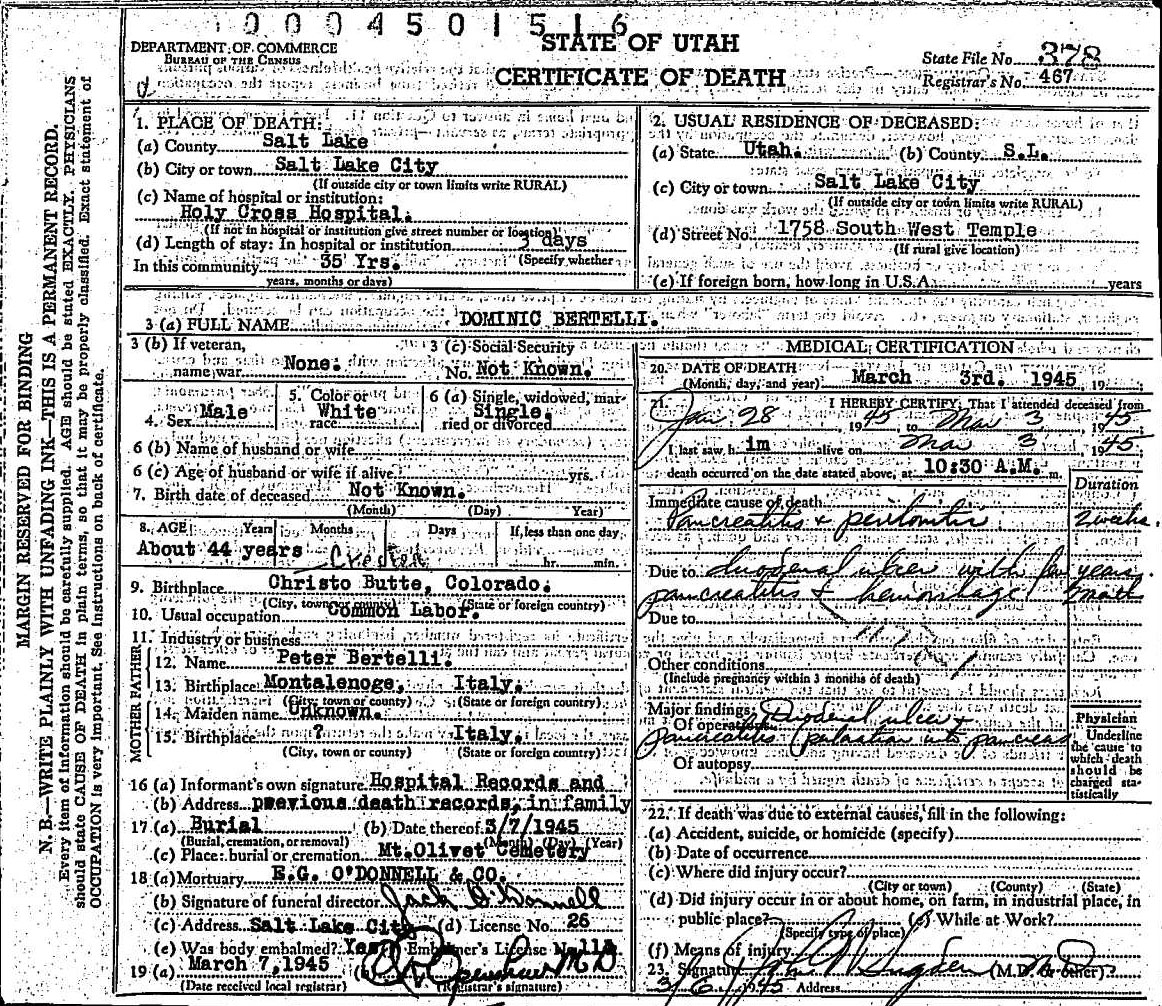 0 0 0 4 5 0 1 5 1 6
DEPARTMENT OF COMMERCE
BUREAU OF THE CENSUS
STATE OF UTAH
CERTIFICATE OF DEATH
State File No. 378
Registrar's No. 467
MARGIN RESERVED FOR BINDING
N. B.—WRITE PLAINLY WITH UNFADING INK—THIS IS A PERMANENT RECORD.
Every item of information should be carefully supplied. AGE should be stated EXACTLY. PHYSICIANS
should state CAUSE OF DEATH in plain terms, so that it may be properly classified. Exact statement of
OCCUPATION is very important. See Instructions on back of certificate.
1. PLACE OF DEATH:
(a) County Salt Lake
(b) City or town Salt Lake City
(If outside city or town limits write RURAL)
(c) Name of hospital or institution:
Holy Cross Hospital.
(If not in hospital or institution give street number or location)
(d) Length of stay: In hospital or institution 3 days
In this community 35 Yrs. (Specify whether
years, months or days)
2. USUAL RESIDENCE OF DECEASED:
(a) State Utah. (b) County S.L.
(c) City or town Salt Lake City
(If outside city or town limits write RURAL)
(d) Street No. 1758 South West Temple
(If rural give location)
(e) If foreign born, how long in U.S.A. years
3 (a) FULL NAME DOMINIC BERTELLI.
3 (b) If veteran, name war None.
3 (c) Social Security No. Not Known.
4. Sex Male
5. Color or race White
6 (a) Single, widowed, married or divorced Single.
6 (b) Name of husband or wife
6 (c) Age of husband or wife if alive yrs.
7. Birth date of deceased Not Known.
(Month) (Day) Year)
8. AGE Years Months Days If, less than one day
About 44 years hr. min.
Crested
9. Birthplace Christo Butte, Colorado.
(City, town or county) (State or foreign country)
10. Usual occupation Common Labor.
11. Industry or business
FATHER
12. Name Peter Bertelli.
13. Birthplace Montalenoge, Italy.
(City, town or county) (State or foreign country)
MOTHER
14. Maiden name Unknown.
15. Birthplace ? Italy.
(City, town or county) (State or foreign country)
16 (a) Informant's own signature Hospital Records and
(b) Address previous death records, in family
17 (a) Burial (b) Date thereof 3/7/1945
(Burial, cremation, or removal) (Month) (Day) (Year)
(c) Place: burial or cremation Mt.Olivet Cemetery
18 (a) Mortuary E.G. O'DONNELL & CO.
(b) Signature of funeral director Jack O'Donnell
(c) Address Salt Lake City (d) License No. 26
(e) Was body embalmed? Yes Embalmer's License No. 113
19 (a) March 7, 1945 (b) M D
(Date received local registrar) (Registrar's signature)
MEDICAL CERTIFICATION
20. DATE OF DEATH
(Month, day, and year) March 3rd. 1945 19
21. I HEREBY CERTIFY, That I attended deceased from
Jan. 28 1945 to Mar 3 1945
I last saw h im alive on Mar 3 1945
death occurred on the date stated above, at 10:30 A.M. m.
Duration
Immediate cause of death
Pancreatitis & peritonitis 2 weeks.
Due to duodenal ulcer with few years.
pancreatitis & hemorrhage 1 month
Due to
Other conditions
(Include pregnancy within 3 months of death)
Major findings:
Of operation Duodenal ulcer &
pancreatitis into pancreas
Of autopsy
Physician
Underline
the cause to
which death
should be
charged sta-
tistically
22. If death was due to external causes, fill in the following:
(a) Accident, suicide, or homicide (specify)
(b) Date of occurrence
(c) Where did injury occur?
(City or town) (County) (State)
(d) Did injury occur in or about home, on farm, in industrial place, in
public place? (e) While at Work?
(Specify type of place)
(f) Means of injury
23. Signature John Sugden (M.D. or other) M D
3/6/1945 Address